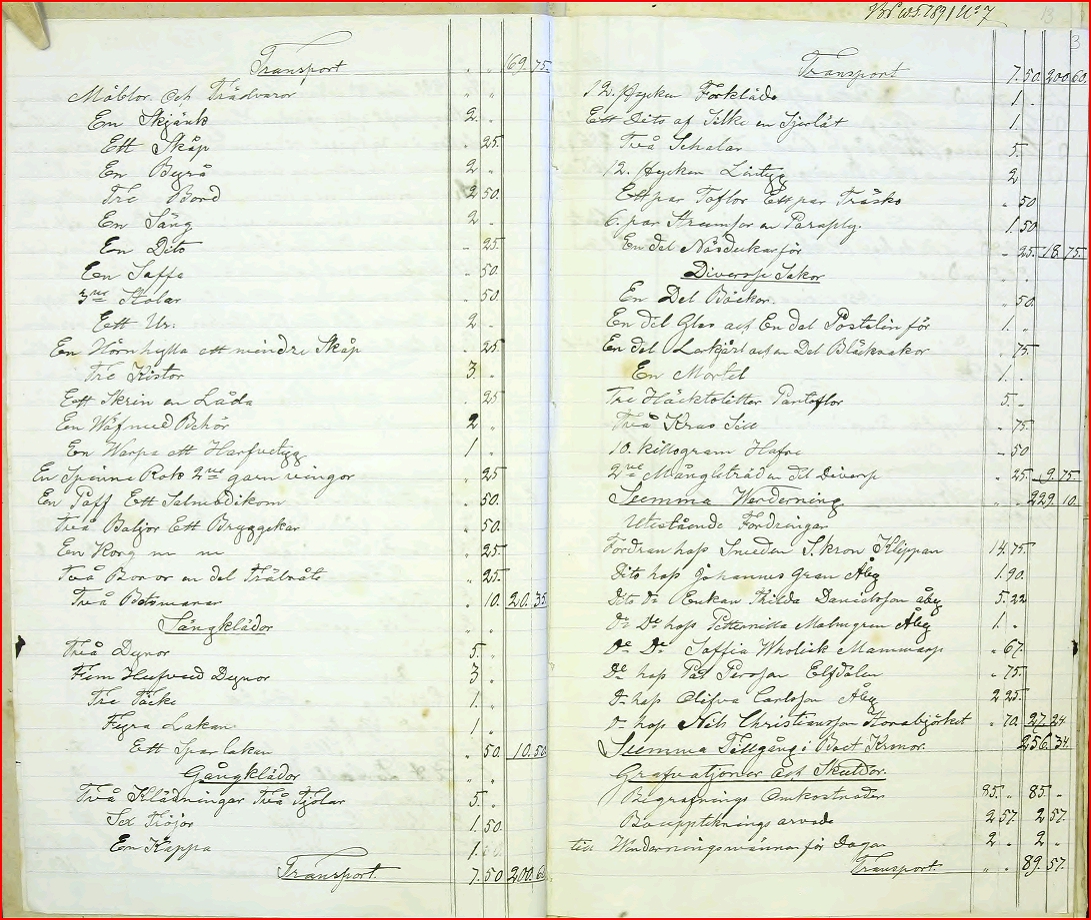 Transport . „ 169. 75.
Möblor och Trädvaror „ „
En Skjänk 2. .
Ett Skåp . 25.
En Byrå 2 „
Tre Bord 2 50.
En Säng 2 .
En Dito - 25
En Soffa - 50.
3ne Stolar . 50.
Ett Ur. 2 .
En Hörnhylla ett mindre Skåp . 25
Tre Kistor 3. .
Ett Skrin en Låda . 25
En Wäf med Behör 2 „
En Warpa ett Harfvetyg 1 .
En Spinne Rock 2ne garn vingor „ 25
En Paff Ett Salmodikom . 50.
Två Baljor Ett Bryggekar „ 50.
En Korg m m „ 25
Två Bonor en del Trälvåt „ 25.
Två Betsmanar . 10. 20. 35
Sängklädor „ „
Två Dynor 5 „
Fem Hufvud Dynor 3 .
Tre Täcke 1. .
Fyra Lakan 1 .
Ett Sparlakan . 50 10. 50
Gångklädor „ „
Två Klädningar Två Kjolar 5 „
Sex Tröjor 1. 50.
En Kappa 1.
Transport. 7. 50 200. 60
BN 1891 No 7
13
3
Transport 7. 50. 200. 60.
12. stycken Förkläde 1. .
Ett Dito af Silke en Sjerlät 1. .
Två Schalar 5. .
12. stycken Lintyg 2
Ett par Toflor Ett par Träsko . 50
6. par Strumfor en Paraply. 1. 50
En del Näsdukar för . 25. 18. 75.
Diverse Sakor
En Del Böckor. „ 50.
En del Glas och En del Postelin för 1. „
En del Lerkjärl och en Del Bläckvakor „ 75.
En Mortel 1. .
Tre Häcktolitter Pantoflor 5. .
Två Krus Sill . 75.
10. killogram Hafre . 50
2ne Mångleträd en del Diverse . 25. 9. 75.
Summa Werderning „ . 229. 10.
Utestående Fordringar
Fordran hos Smeden S. kron Klippan 14. 75.
Dito hos Johannes Gran Åby 1. 90.
Dito Do Enkan Thilda Danielsson åby 5. 22
Do Do hos Petternilla Malmgren Åby 1 .
Do Do Soffia Wholick Mannarp „ 67.
Do hos Pär Persson Elfdalen „ 75.
Do hos Olifva Carlsson Åby 2 25.
Do hos Nils Christiansson Stenabjörket „ 70. 27. 24
Summa Tillgång i Boet Kronor. 256. 34.
Grafvationer och Skuldor.
Begrafnings Omkostnader 85. „ 85. .
Bouppteknings arvode 2 57. 2 57.
till Werderningsmännen för Dagar 2 . 2 .
Transport. „ . 89. 57.